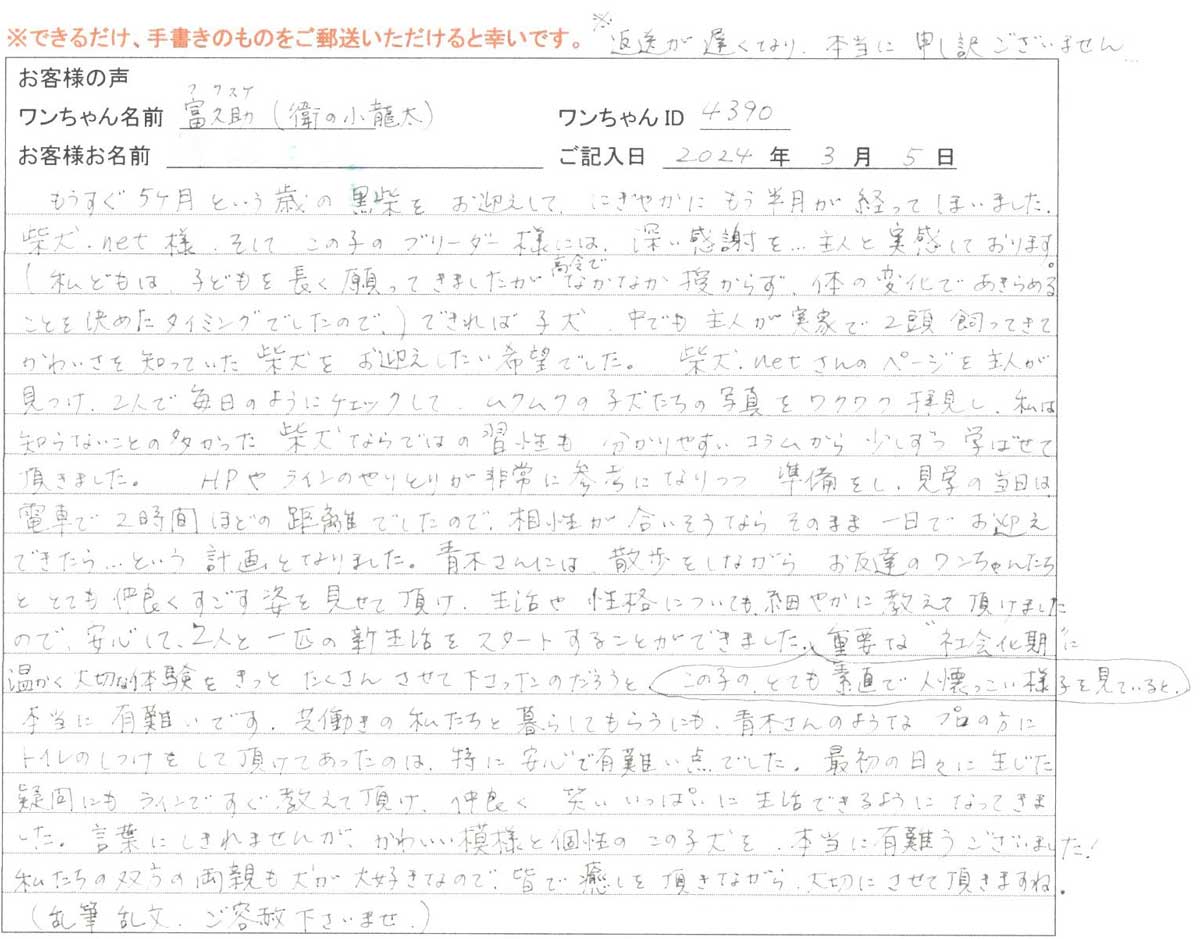 ※できるだけ、手書きのものをご郵送いただけると幸いです。 ※返送が遅くなり、本当に申し訳ございません…
お客様の声
フクスケ
ワンちゃん名前 富久助(衛の小龍太) ワンちゃん ID 4390
お客様お名前 ご記入日 2024 年 3 月 5 日
もうすぐ5ケ月という歳の黒柴をお迎えして、にぎやかにもう半月が経ってしまいました。
柴犬.net様、そしてこの子のブリーダー様には、深い感謝を…主人と実感しております。
(私どもは、子どもを長く願ってきましたが高令でなかなか授からず、体の変化であきらめる
ことを決めたタイミングでしたので、)できれば子犬、中でも主人が実家で2頭飼ってきて
かわいさを知っていた柴犬をお迎えしたい希望でした。 柴犬.netさんのページを主人が
見つけ、2人で毎日のようにチェックして、ムクムクの子犬たちの写真をワクワク拝見し、私は
知らないことの多かった柴犬ならではの習性も分かりやすいコラムから少しずつ学ばせて
頂きました。 HPやラインのやりとりが非常に参考になりつつ準備をし、見学の当日は、
電車で2時間ほどの距離でしたので、相性が合いそうならそのまま一日でお迎え
できたら…という計画となりました。青木さんには、散歩をしながらお友達のワンちゃんたち
ととても仲良くすごす姿を見せて頂け、生活や性格についても、細やかに教えて頂けました
ので、安心して、2人と一匹の新生活をスタートすることができました。重要な"社会化期"に
温かく大切な体験をきっとたくさんさせて下さったのだろうと、この子の、とても素直で人懐っこい様子を見ていると、
本当に有難いです。共働きの私たちと暮らしてもらうにも、青木さんのようなプロの方に
トイレのしつけをして頂けてあったのは、特に安心で有難い点でした。最初の日々に生じた
疑問にもラインですぐ教えて頂け、仲良く笑いいっぱいに生活できるようになってきま
した。言葉にしきれませんが、かわいい模様と個性のこの子犬を、本当に有難うございました!
私たちの双方の両親も犬が大好きなので、皆で癒しを頂きながら、大切にさせて頂きますね。
(乱筆乱文、ご容赦下さいませ。)